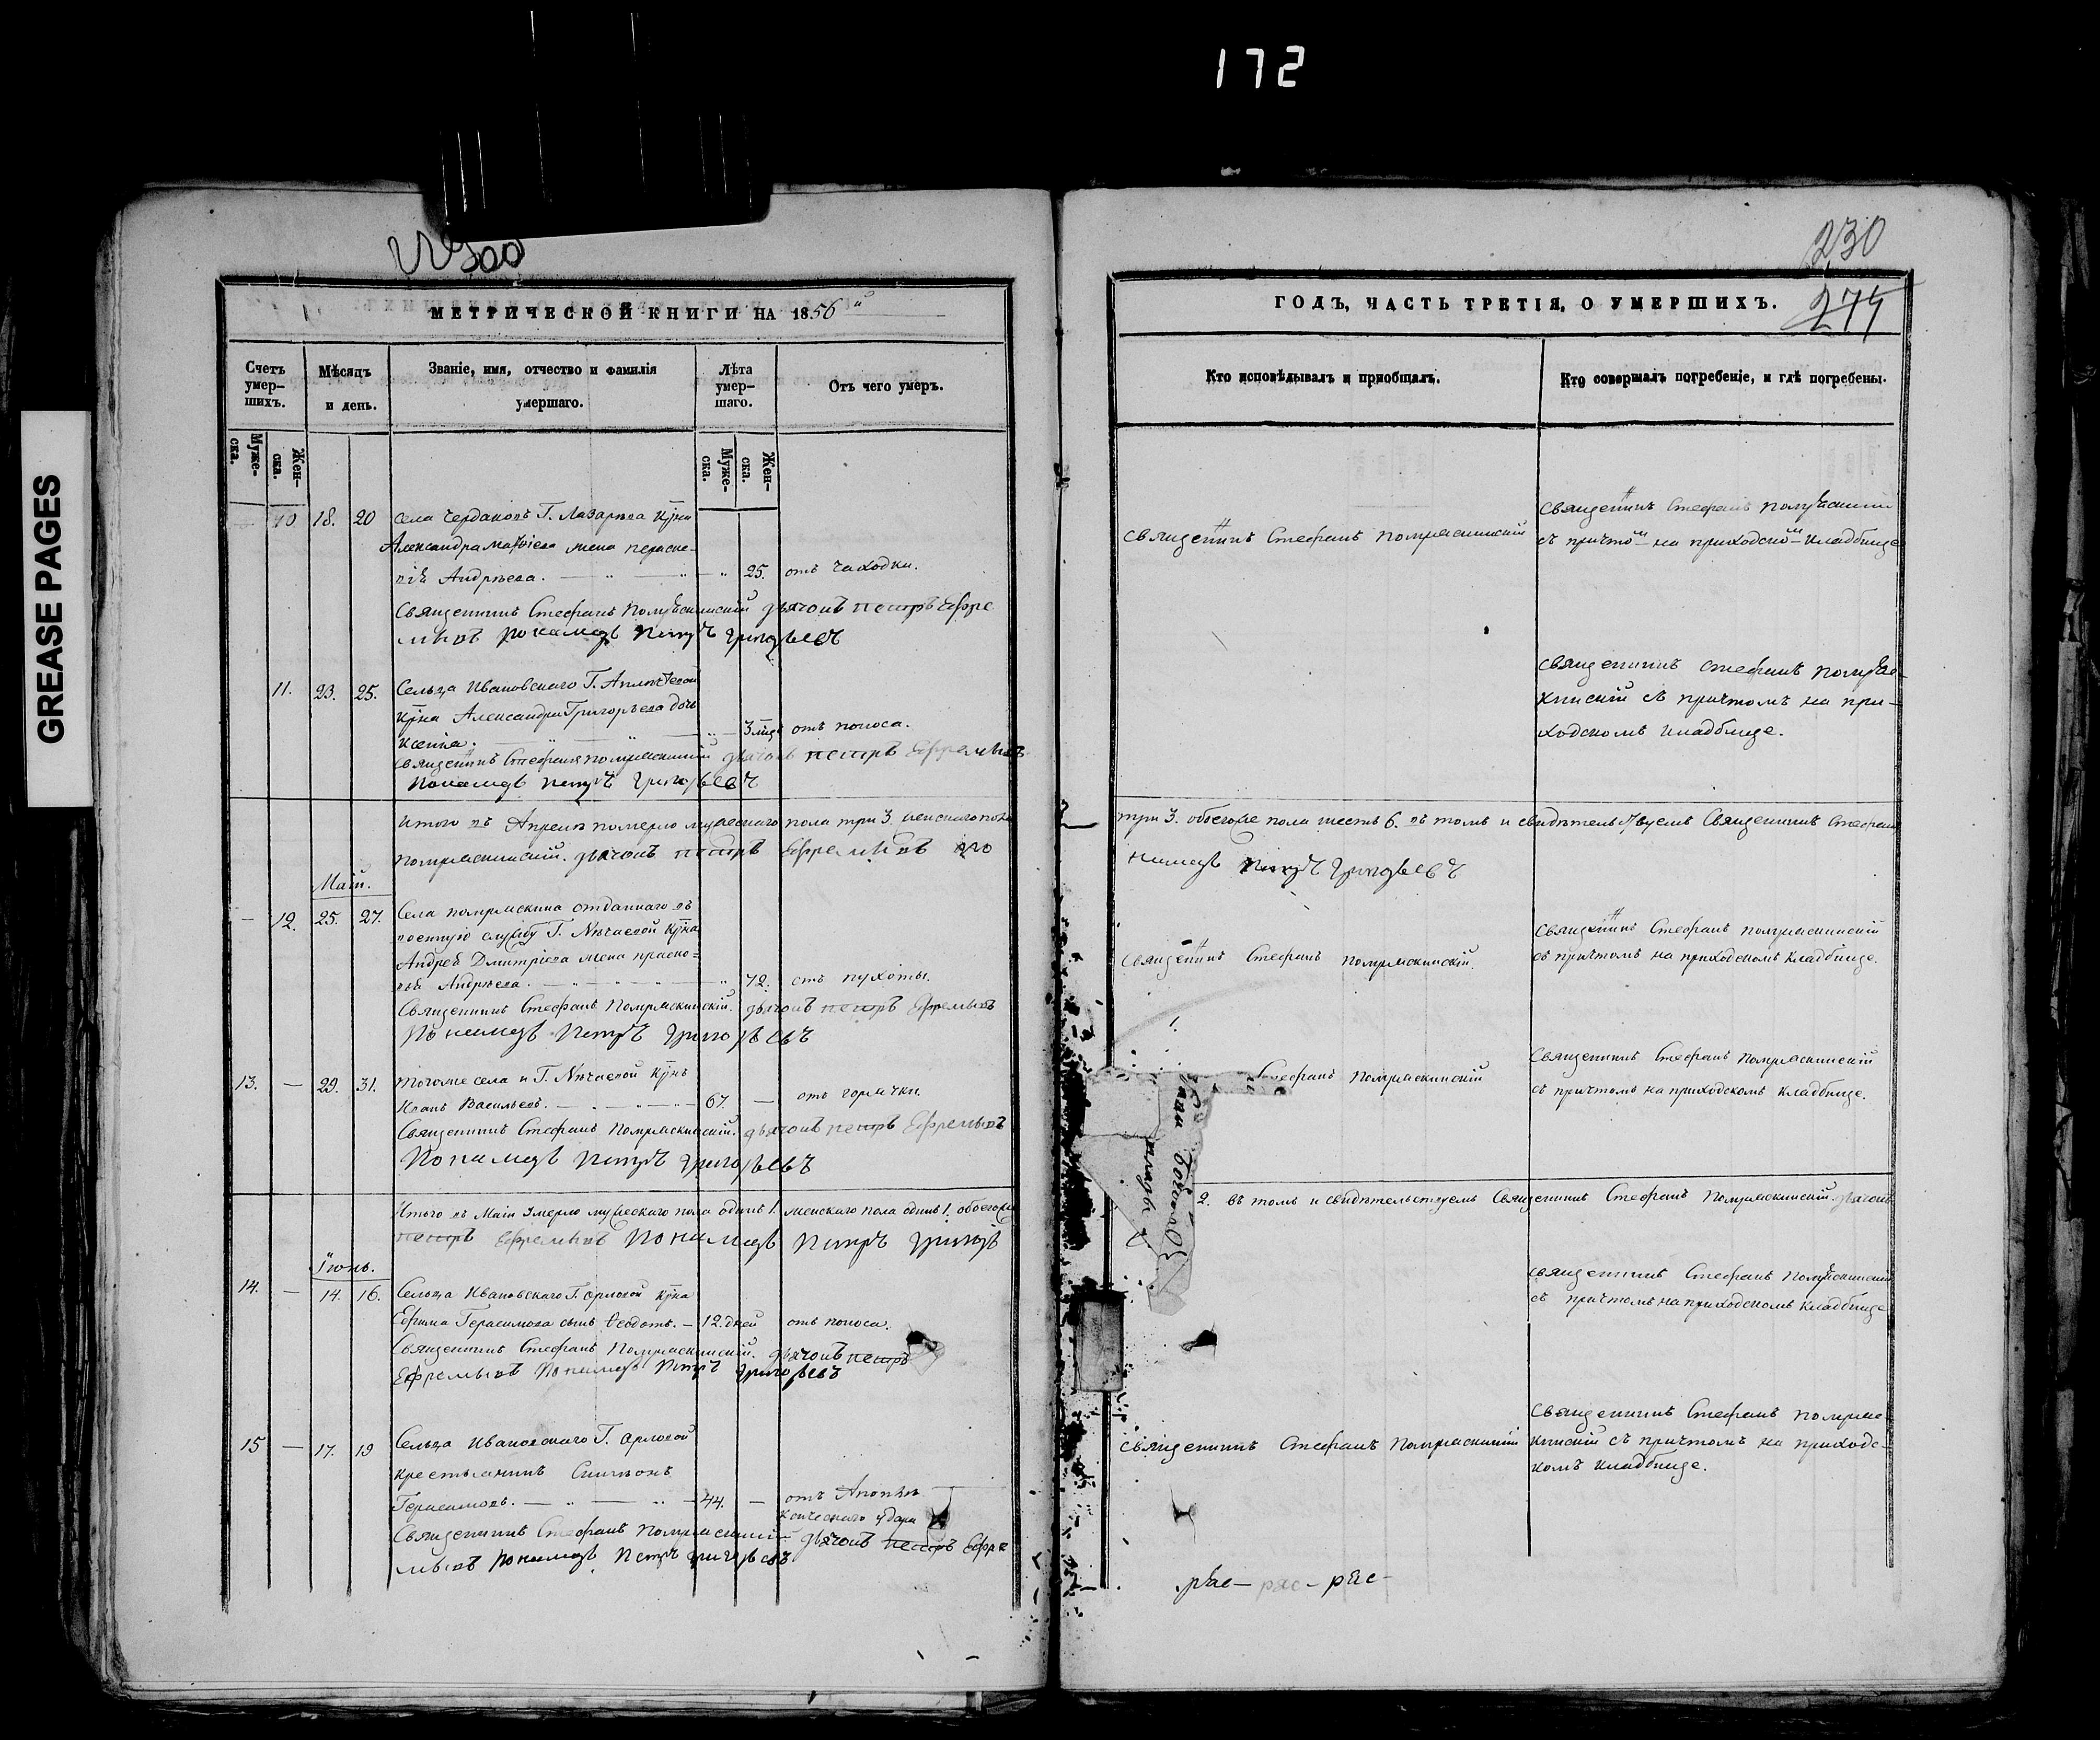 172
GREASE PAGES
230
274
МЕТРИЧЕСКОЙ КНИГИ НА 1856й
Счетъ умер-
шихъ.
Мѣсяцъ
и день.
Званіе, имя, отчество и фамилія
умершаго.
Лѣта
умер-
шаго.
Отъ чего умеръ.
Муже-
ска.
Жен-
ска.
Муже-
ска.
Жен-
ска.
10 18. 20 Села Чердаковъ Г. Лазарева
Александра Матвіева жена
Андреева. 25. отъ чахотки.
Священникъ Стефанъ Помряскинскій дьячокъ Петръ Ефре
мовъ Пономарь Петръ Григорьевъ
11. 23. 25. Сельца Ивановскаго Г.
Александра Григорьева дочь
Ксенія. 3 отъ поноса.
Священникъ Стефанъ Помряскинскій дьячокъ Петръ Ефремовъ
Пономарь Петръ Григорьевъ
Итого въ Апреле померло мужескаго пола три 3. женскаго пола
Помряскинскій. дьячокъ Петръ Ефремовъ По
Маій.
12. 25. 27. Села Помряскина отданнаго въ
военную службу Г. Нѣчаевой
Андрея Дмитріева жена
Андреева. 72. отъ пухоты.
Священникъ Стефанъ Помряскинскій. дьячокъ Петръ Ефремовъ
Пономарь Петръ Григорьевъ
13. — 29. 31. Тогоже села и Г. Нѣчаевой
Иванъ Васильевъ. 67. — отъ горячки.
Священникъ Стефанъ Помряскинскій. дьячокъ Петръ Ефремовъ
Пономарь Петръ Григорьевъ
Итого въ Маіи умерло мужескаго пола одинъ 1. женскаго пола одинъ 1. обоегоже
Петръ Ефремовъ Пономарь Петръ
Іюнь.
14. — 14. 16. Сельца Ивановскаго Г. Орловой
Ефима Герасимова сынъ Ѳеодотъ. — 12. дней отъ поноса.
Священникъ Стефанъ Помряскинскій. дьячокъ Петръ
Ефремовъ Пономарь Петръ Григорьевъ
15 — 17. 19 Сельца Ивановскаго Г. Орловой
крестьянинъ Симеонъ
Герасимовъ. 44. — отъ Апопле
ксическаго удара
Священникъ Стефанъ Помряскинскій дьячокъ Петръ Ефре
мовъ Пономарь Петръ Григорьевъ
ГОДЪ, ЧАСТЬ ТРЕТІЯ, О УМЕРШИХЪ.
Кто исповѣдывалъ и пріобщалъ.
Кто совершалъ погребеніе, и гдѣ погребены.
Священникъ Стефанъ Помряскинскій
Священникъ Стефанъ Помряскинскій
съ причтомъ на приходскомъ кладбище
Священникъ Стефанъ Помряс-
кинскій съ причтомъ на при-
ходскомъ кладбище.
три 3. обоегоже пола шесть 6. въ томъ и свидѣтельствуемъ Священникъ Стефанъ
Петръ Григорьевъ
Священникъ Стефанъ Помряскинскій.
Священникъ Стефанъ Помряскинскій
съ причтомъ на приходскомъ кладбище.
Стефанъ Помряскинскій
Священникъ Стефанъ Помряскинскій
съ причтомъ на приходскомъ кладбище.
2. въ томъ и свидѣтельствуемъ Священникъ Стефанъ Помряскинскій. дьячокъ
Священникъ Стефанъ Помряскинскій
съ причтомъ на приходскомъ кладбище
Священникъ Стефанъ Помряскинскій
Священникъ Стефанъ Помряс-
кинскій съ причтомъ на приходс-
комъ кладбище.
ряс— ряс— ряс—